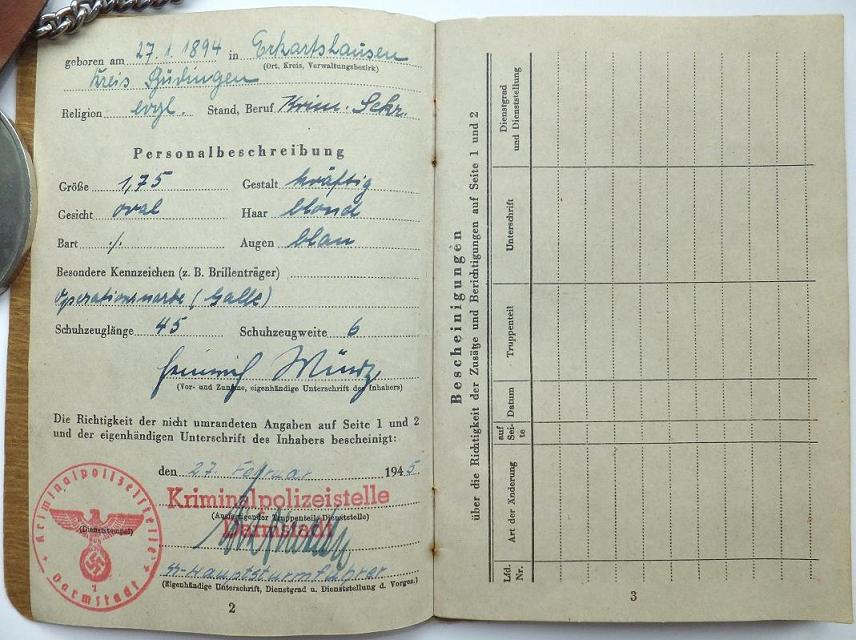 geboren am 27.1.1894 in Eckartshausen
(Ort, Kreis, Verwaltungsbezirk)
Kreis Büdingen
Religion evgl. Stand, Beruf Krim. Sekr.
Personalbeschreibung
Größe 1,75 Gestalt kräftig
Gesicht oval Haar blond
Bart ./. Augen blau
Besondere Kennzeichen (z. B. Brillenträger)
Operationsnarbe (Galle)
Schuhzeuglänge 45 Schuhzeugweite 6
Heinrich
(Vor- und Zuname, eigenhändige Unterschrift des Inhabers)
Die Richtigkeit der nicht umrandeten Angaben auf Seite 1 und 2
und der eigenhändigen Unterschrift des Inhabers bescheinigt:
den 27. Februar 1945.
Kriminalpolizeistelle
(Ausfertigender Truppenteil, Dienststelle)
Darmstadt
SS-Hauptsturmführer
(Eigenhändige Unterschrift, Dienstgrad u. Dienststellung d. Vorges.)
Kriminalpolizeistelle
(Dienststempel)
1
Darmstadt
2
Bescheinigungen
über die Richtigkeit der Zusätze und Berichtigungen auf Seite 1 und 2
Lfd. Nr.
Art der Änderung
auf Sei- te
Datum
Truppenteil
Unterschrift
Dienstgrad
und Dienststellung
3